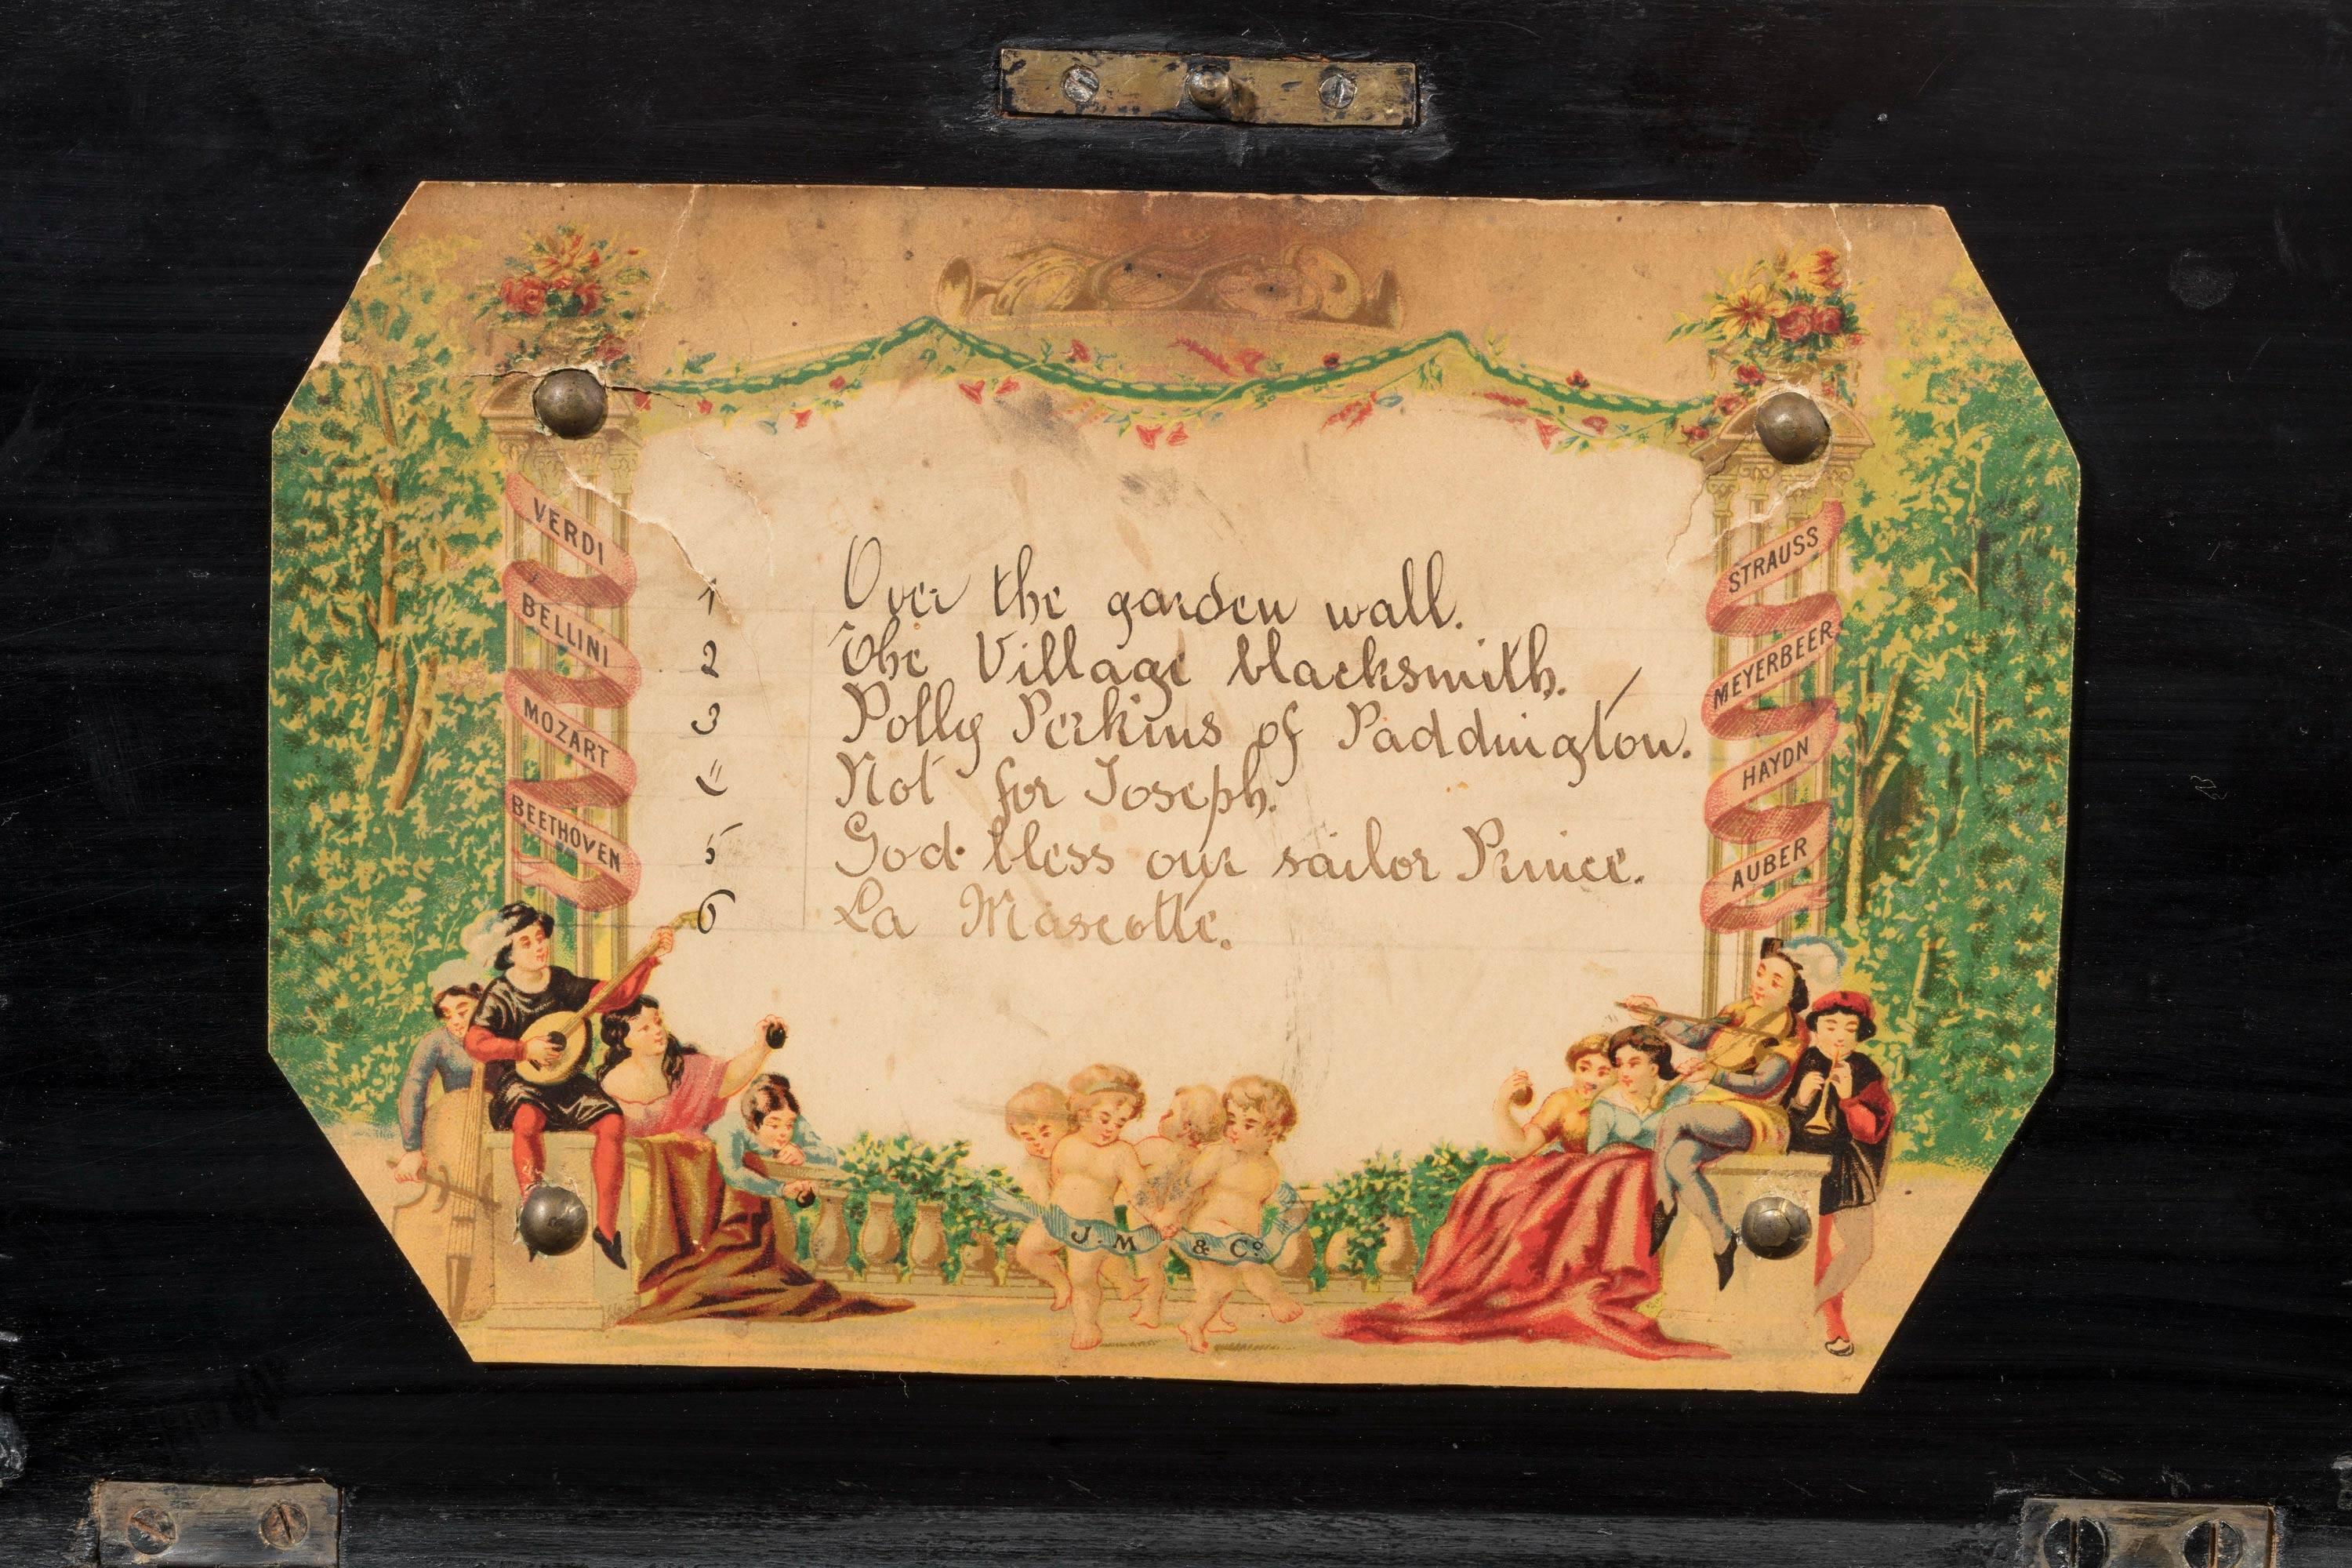 VERDI
BELLINI
MOZART
BEETHOVEN
1 Over the garden wall.
2 The Village blacksmith.
3 Polly Perkins of Paddington.
4 Not for Joseph.
5 God bless our sailor Prince.
6 La Mascotte.
STRAUSS
MEYERBEER
HAYDN
AUBER
J. M & Co.